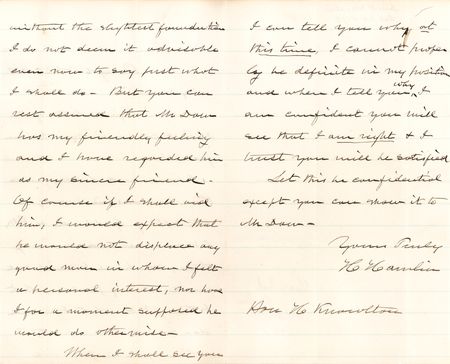 without the slightest foundation
I do not deem it advisable
even now to say just what
I shall do - But you can
rest assured that Mr Daw
has my friendly feeling
and I have regarded him
as my sincere friend -
Of course if I shall aid
him, I would expect that
he would not displace any
good men in whom I felt
a personal interest, nor have
I for a moment supposed he
would do otherwise -
When I shall see you
I can tell you why at
this time, I cannot proper
ly be definite in my position
and when I tell you why, I
am confident you will
see that I am right & I
trust you will be satisfied
Let this be confidential
except you can show it to
Mr Daw -
Yours Truly
H Hamlin
Hon H Knowlton